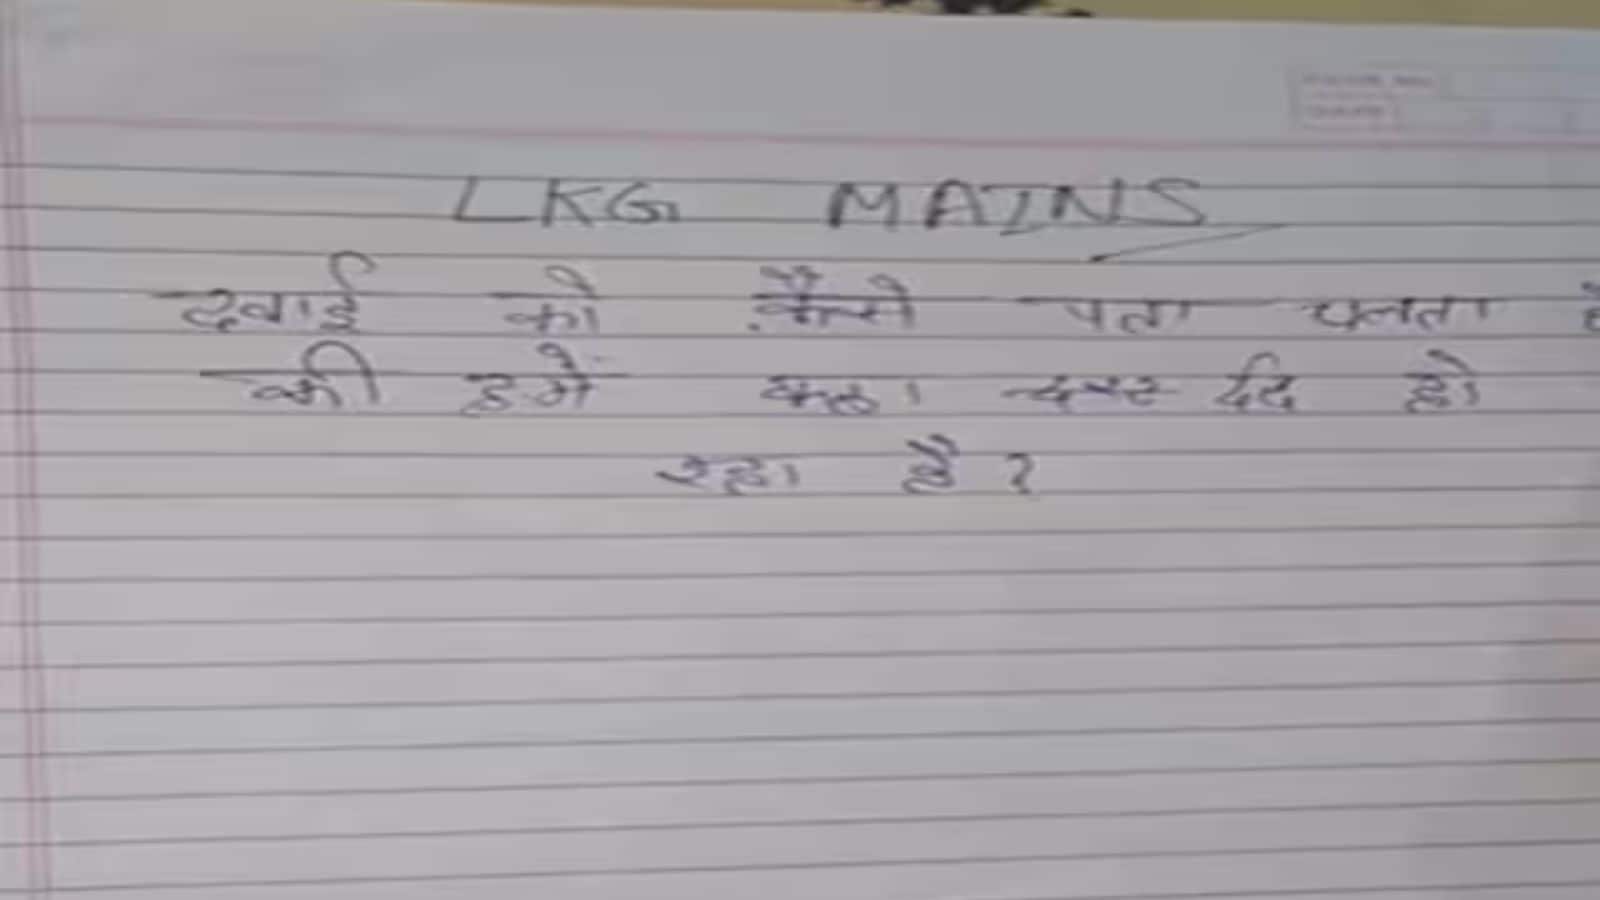 LKG MAINS
दवाई को कैसे पता चलता है
की हमें कहा दर्द हो
रहा है ?